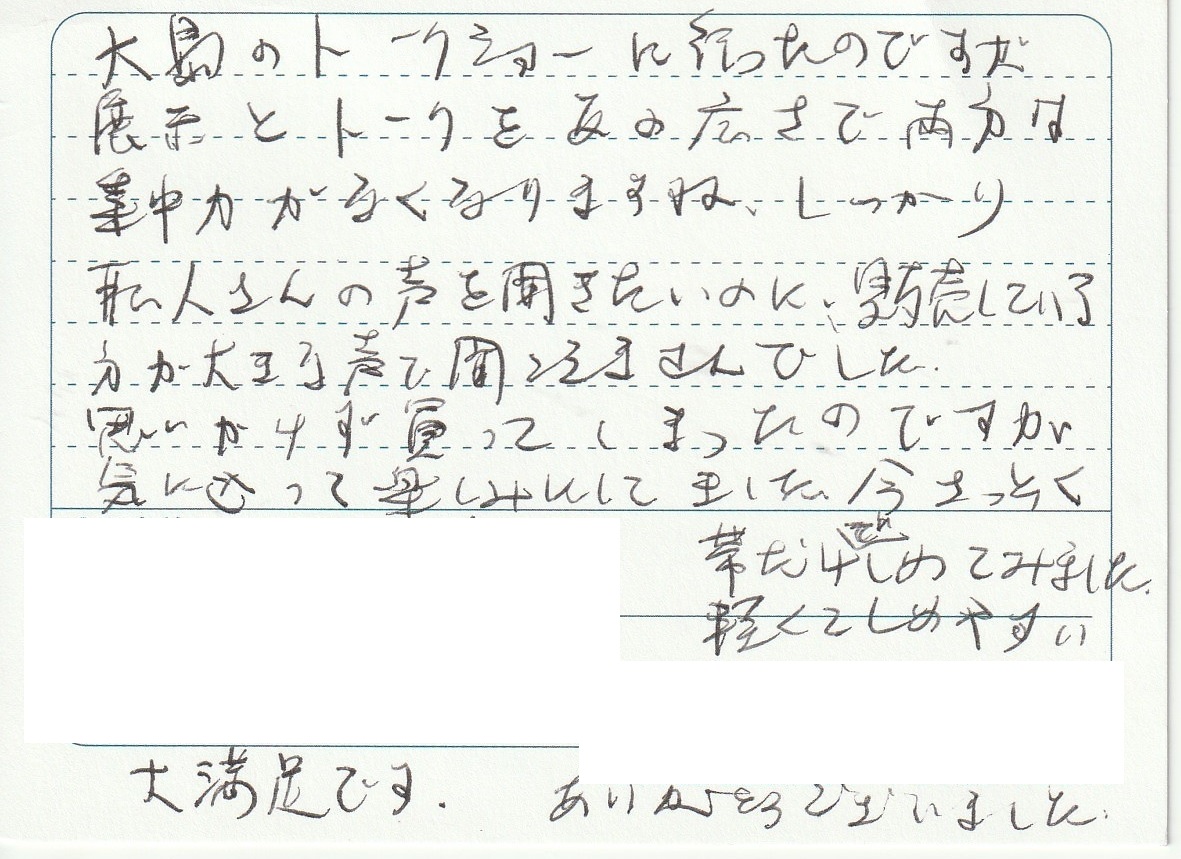 大島のトークショーに行ったのですが
展示とトークを の広さで両方は
集中力がなくなりますね、しっかり
 人さんの声を聞きたいのに、 売している
方が大きな声で聞こえませんでした。
思いがけず買ってしまったのですが
気に入って楽しみにしてました。今さっそく
帯だけでもしめてみました。
軽くてしめやすい
大満足です。 ありがとうございました。